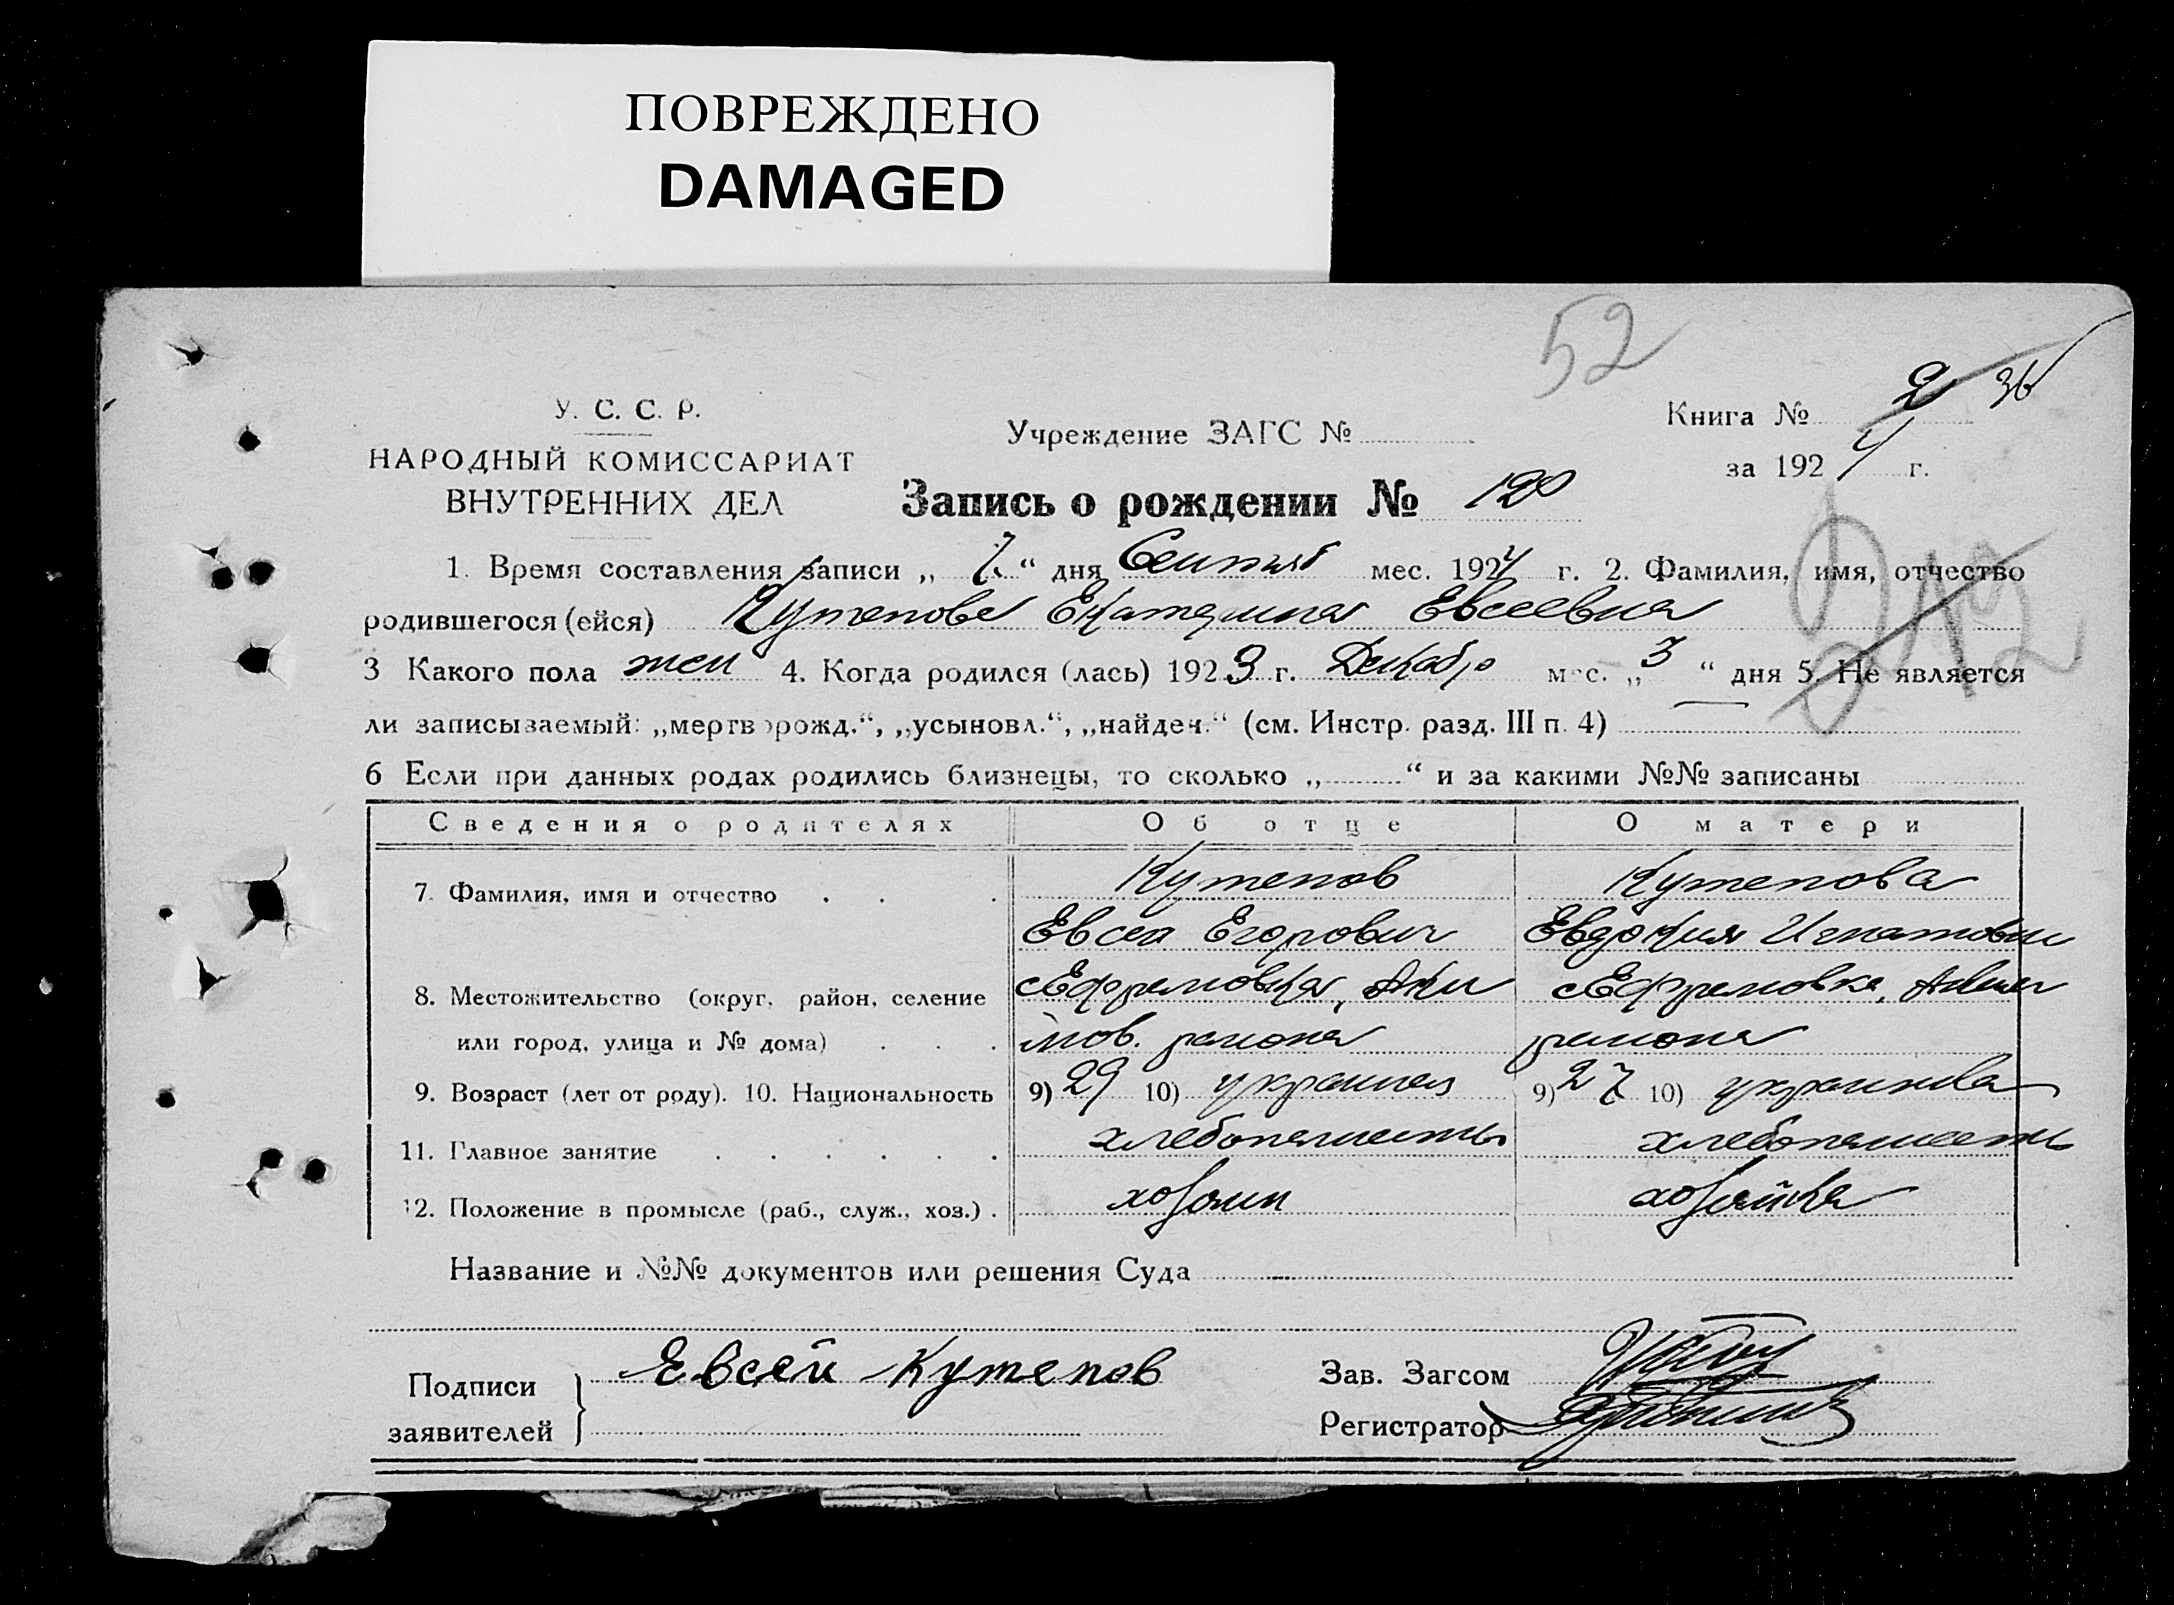 ПОВРЕЖДЕНО
DAMAGED
52
У. С. С. Р.
НАРОДНЫЙ КОМИССАРИАТ
ВНУТРЕННИХ ДЕЛ
Учреждение ЗАГС №
Книга № 2 36
за 1924 г.
Запись о рождении № 120
1. Время составления записи „7“ дня Сентяб мес. 1924 г. 2. Фамилия, имя, отчество
родившегося (ейся) Кутепова Екатерина Евсеевна
3 Какого пола жен 4. Когда родился (лась) 1923 г. Декабр мес. „3“ дня 5. Не является
ли записываемый: „мертворожд.“, „усыновл.“, „найден.“ (см. Инстр. разд. III п. 4)
6 Если при данных родах родились близнецы, то сколько „ “ и за какими №№ записаны
Сведения о родителях Об отце О матери
7. Фамилия, имя и отчество Кутепов Кутепова
Евсей Егорович Евдокия Игнатовн
8. Местожительство (округ, район, селение сЕфремовка, Аки сЕфремовка,
или город, улица и № дома) мов. района района
9. Возраст (лет от роду). 10. Национальность 9) 29 10) украинец 9) 27 10) украинка
11. Главное занятие хлебопашество хлебопашеств
12. Положение в промысле (раб., служ., хоз.) хозяин хозяйка
Название и №№ документов или решения Суда
Подписи
заявителей
Евсей Кутепов
Зав. Загсом
Регистратор